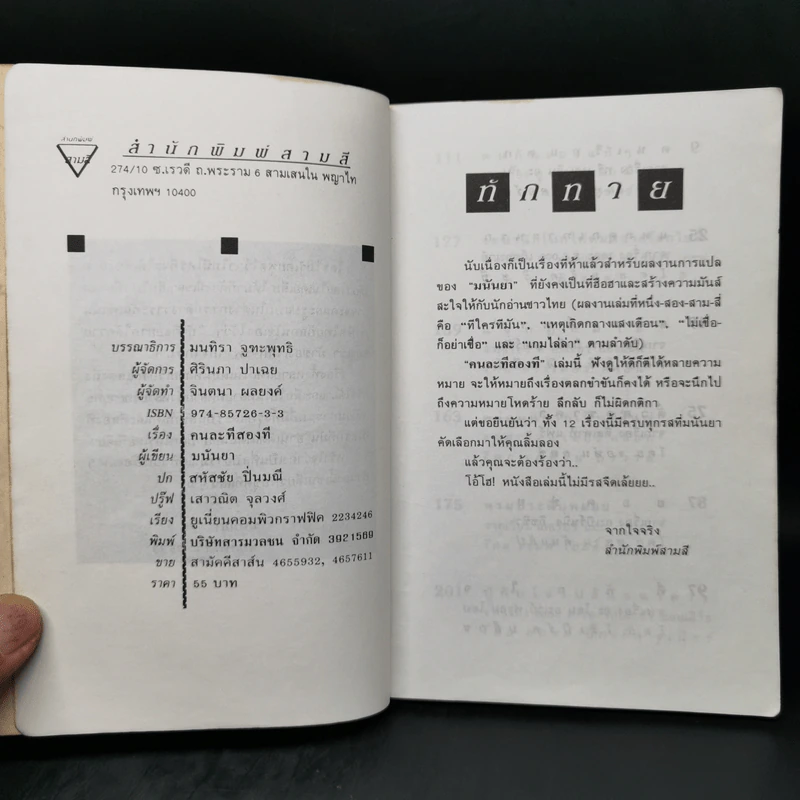 สำนักพิมพ์
สามสี
สำนักพิมพ์สามสี
274/10 ซ.เรวดี ถ.พระราม 6 สามเสนใน พญาไท
กรุงเทพฯ 10400
บรรณาธิการ มนทิรา จูฑะพุทธิ
ผู้จัดการ ศิรินภา ปาเฉย
ผู้จัดทำ จินตนา ผลยงค์
ISBN 974-85726-3-3
เรื่อง คนละทีสองที
ผู้เขียน มนันยา
ปก สหัสชัย ปิ่นมณี
ปรู๊ฟ เสาวณิต จุลวงศ์
เรียง ยูเนี่ยนคอมพิวกราฟฟิค 2234246
พิมพ์ บริษัทสารมวลชน จำกัด 3921569
ขาย สามัคคีสาส์น 4655932, 4657611
ราคา 55 บาท
ทักทาย
นับเนื่องก็เป็นเรื่องที่ห้าแล้วสำหรับผลงานการแปล
ของ "มนันยา" ที่ยังคงเป็นที่ฮือฮาและสร้างความมันส์
สะใจให้กับนักอ่านชาวไทย (ผลงานเล่มที่หนึ่ง-สอง-สาม-สี่
คือ "ทีใครทีมัน", "เหตุเกิดกลางแสงเดือน", "ไม่เชื่อ-
ก็อย่าเชื่อ" และ "เกมไล่ล่า" ตามลำดับ)
"คนละทีสองที" เล่มนี้ ฟังดูให้ดีก็ดีได้หลายความ
หมาย จะให้หมายถึงเรื่องตลกขำขันก็คงได้ หรือจะนึกไป
ถึงความหมายโหดร้าย ลึกลับ ก็ไม่ผิดกติกา
แต่ขอยืนยันว่า ทั้ง 12 เรื่องนี้มีครบทุกรสที่มนันยา
คัดเลือกมาให้คุณลิ้มลอง
แล้วคุณจะต้องร้องว่า..
โอ้โฮ! หนังสือเล่มนี้ไม่มีรสจืดเล้ยยย..
จากใจจริง
สำนักพิมพ์สามสี